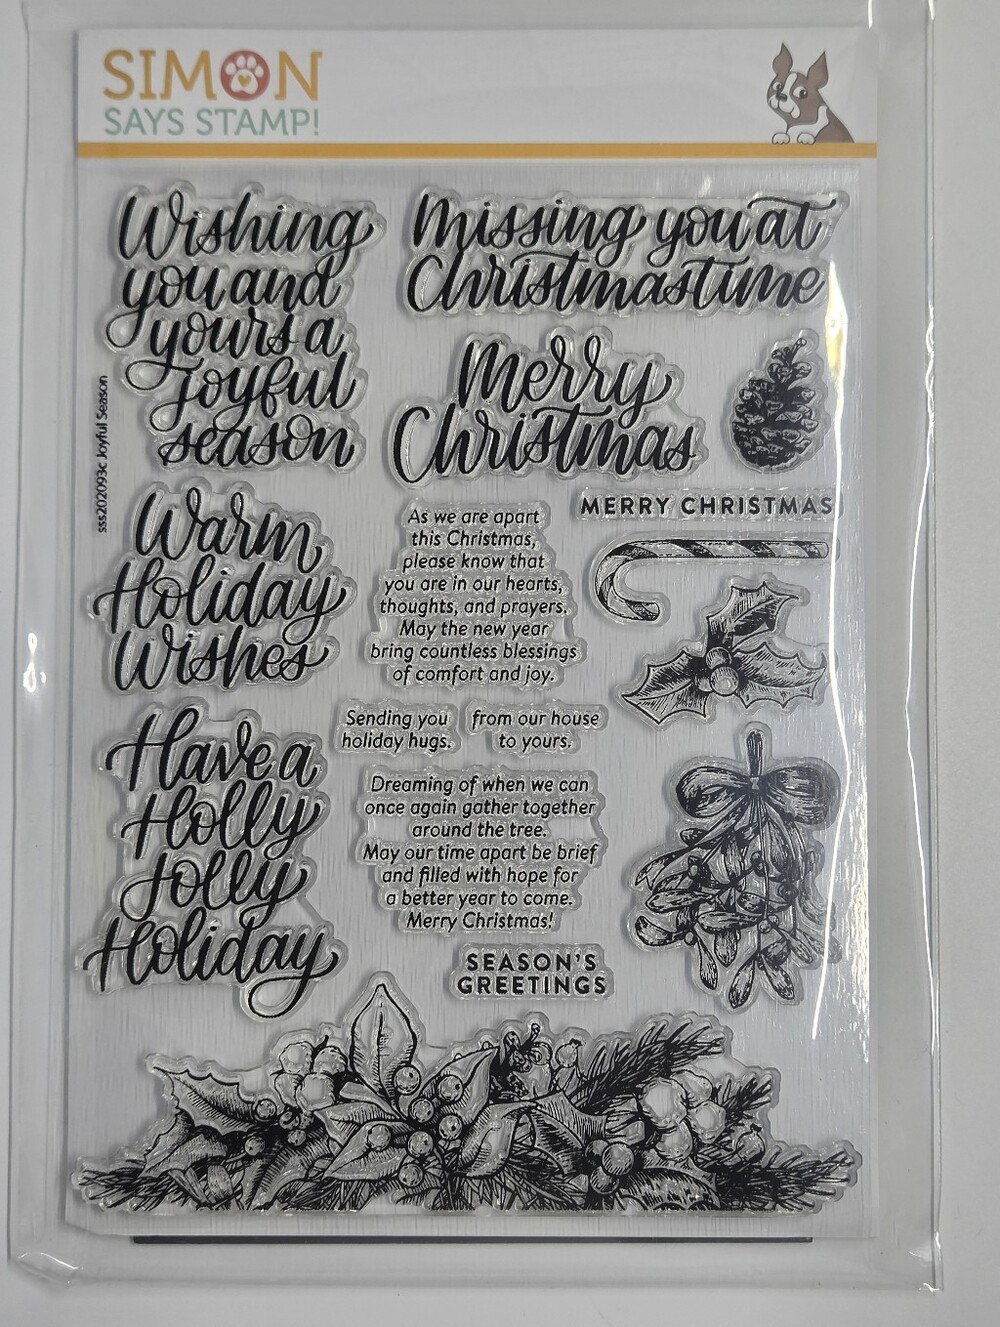 SIMON
SAYS STAMP!
Wishing
you and
yours a
joyful
season
missing you at
Christmastime
Merry
Christmas
sss202093c Joyful Season
MERRY CHRISTMAS
Warm
Holiday
Wishes
As we are apart
this Christmas,
please know that
you are in our hearts,
thoughts, and prayers.
May the new year
bring countless blessings
of comfort and joy.
Sending you
holiday hugs.
from our house
to yours.
Have a
Holly
Jolly
Holiday
Dreaming of when we can
once again gather together
around the tree.
May our time apart be brief
and filled with hope for
a better year to come.
Merry Christmas!
SEASON'S
GREETINGS